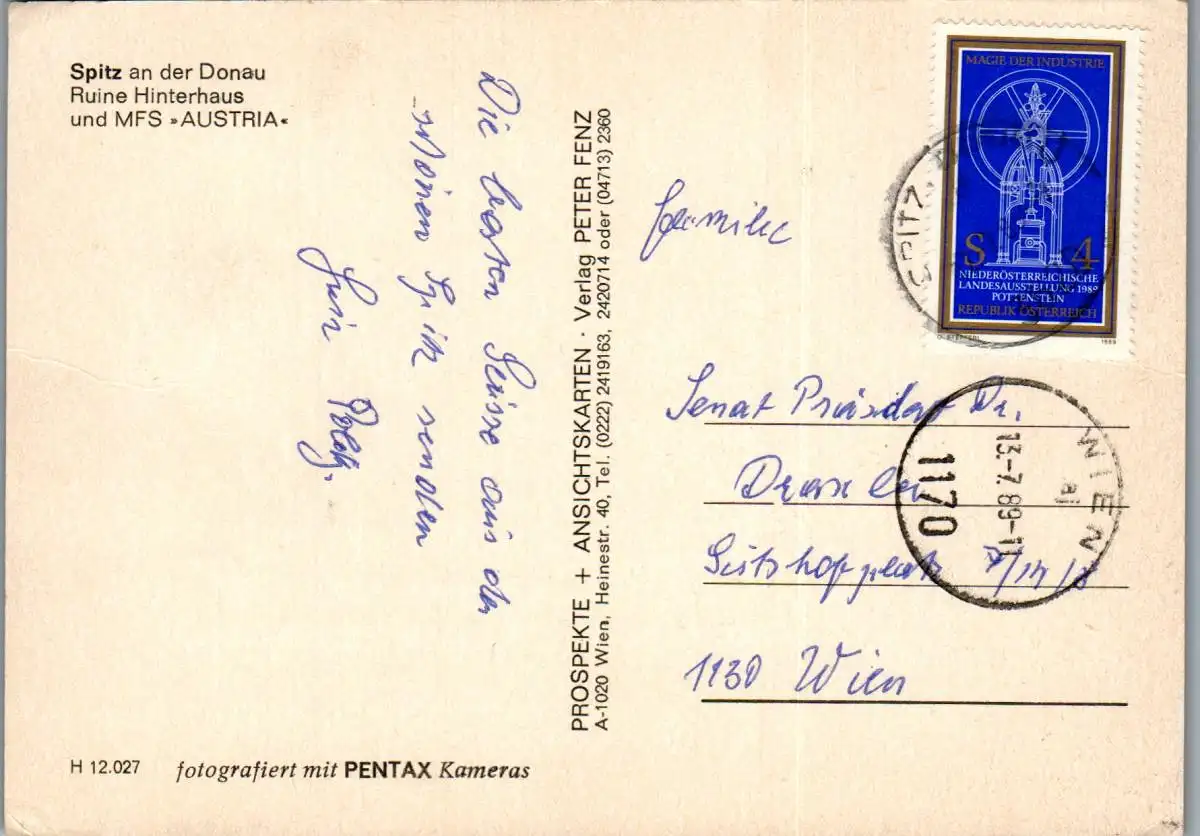 Spitz an der Donau
Ruine Hinterhaus
und MFS »AUSTRIA«
Die besten Grüsse aus der
Spitz senden
PROSPEKTE + ANSICHTSKARTEN · Verlag PETER FENZ
A-1020 Wien, Heinestr. 40, Tel. (0222) 2419163, 2420714 oder (04713) 2360
MAGIE DER INDUSTRIE
S 4
NIEDERÖSTERREICHISCHE
LANDESAUSSTELLUNG 1989
POTTENSTEIN
REPUBLIK ÖSTERREICH
1989
SPITZ
Familie
Senat Präsident Dr.
WIEN
13.-7.89-11
1170
1130 Wien
H 12.027
fotografiert mit PENTAX Kameras